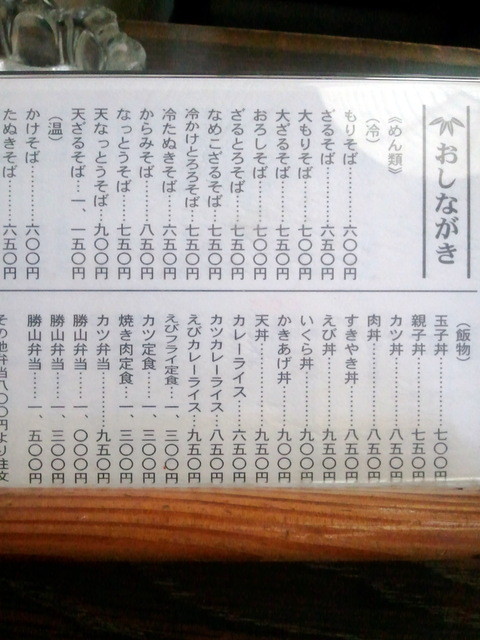 おしながき
《めん類》
（冷）
もりそば……………六〇〇円
ざるそば……………六五〇円
大もりそば…………七〇〇円
大ざるそば…………七五〇円
おろしそば…………七〇〇円
ざるとろそば………七五〇円
なめこざるそば……七五〇円
冷かけとろろそば…七五〇円
冷たぬきそば………六五〇円
からみそば…………八五〇円
なっとうそば………七五〇円
天なっとうそば……九〇〇円
天ざるそば…一、一五〇円
（温）
かけそば……………六〇〇円
たぬきそば…………六五〇円
（飯物）
玉子丼………………七〇〇円
親子丼………………七五〇円
カツ丼………………八五〇円
肉丼…………………八五〇円
すきやき丼…………八五〇円
えび丼………………九五〇円
いくら丼……………九〇〇円
かきあげ丼…………九〇〇円
天丼…………………九五〇円
カレーライス………六五〇円
カツカレーライス…八五〇円
えびカレーライス…九五〇円
えびフライ定食…一、三〇〇円
カツ定食………一、三〇〇円
焼き肉定食……一、三〇〇円
カツ弁当……………九五〇円
勝山弁当………一、〇〇〇円
勝山弁当………一、三〇〇円
勝山弁当………一、五〇〇円
その他弁当八〇〇円より注文